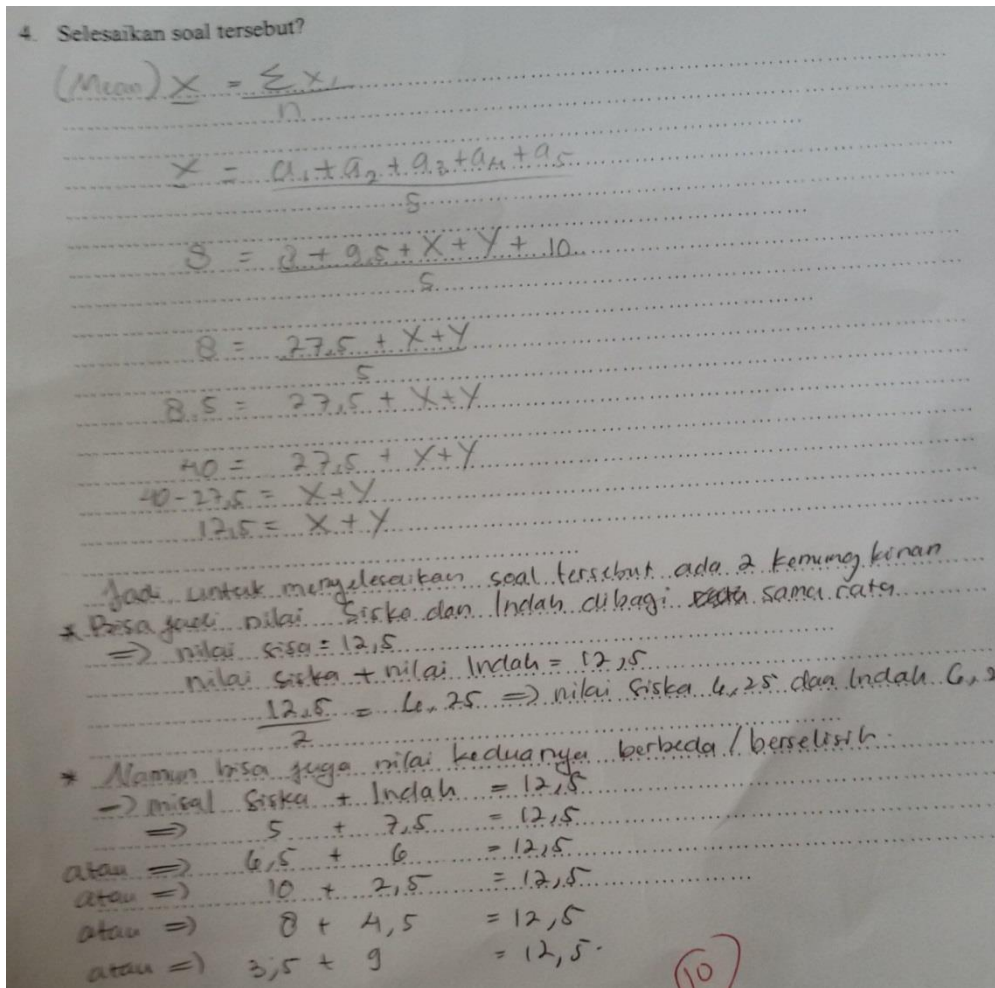 4. Selesaikan soal tersebut?
(Mean) x = Σ xi
n
x = a1 + a2 + a3 + a4 + a5
5
8 = 8 + 9,5 + X + Y + 10
5
8 = 27,5 + X + Y
5
8.5 = 27,5 + X + Y
40 = 27,5 + X + Y
40 - 27,5 = X + Y
12,5 = X + Y
Jadi untuk menyelesaikan soal tersebut ada 2 kemungkinan
* Bisa jadi nilai Siska dan Indah dibagi sama rata
=> nilai sisa = 12,5
nilai siska + nilai Indah = 12,5
12,5 = 6,25 => nilai siska 6,25 dan Indah 6,2
2
* Namun bisa juga nilai keduanya berbeda / berselisih.
-> misal Siska + Indah = 12,5
=> 5 + 7,5 = 12,5
atau => 6,5 + 6 = 12,5
atau => 10 + 2,5 = 12,5
atau => 8 + 4,5 = 12,5
atau => 3,5 + 9 = 12,5.
10